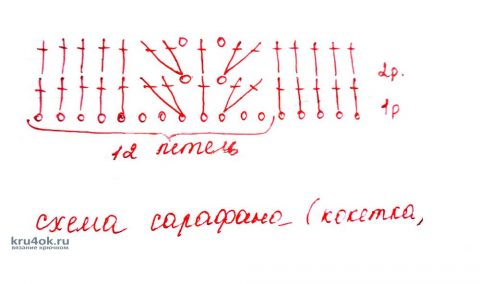 2р.
1р
12 петель
схема сарафана (кокетка,
kru4ok.ru
вязание крючком